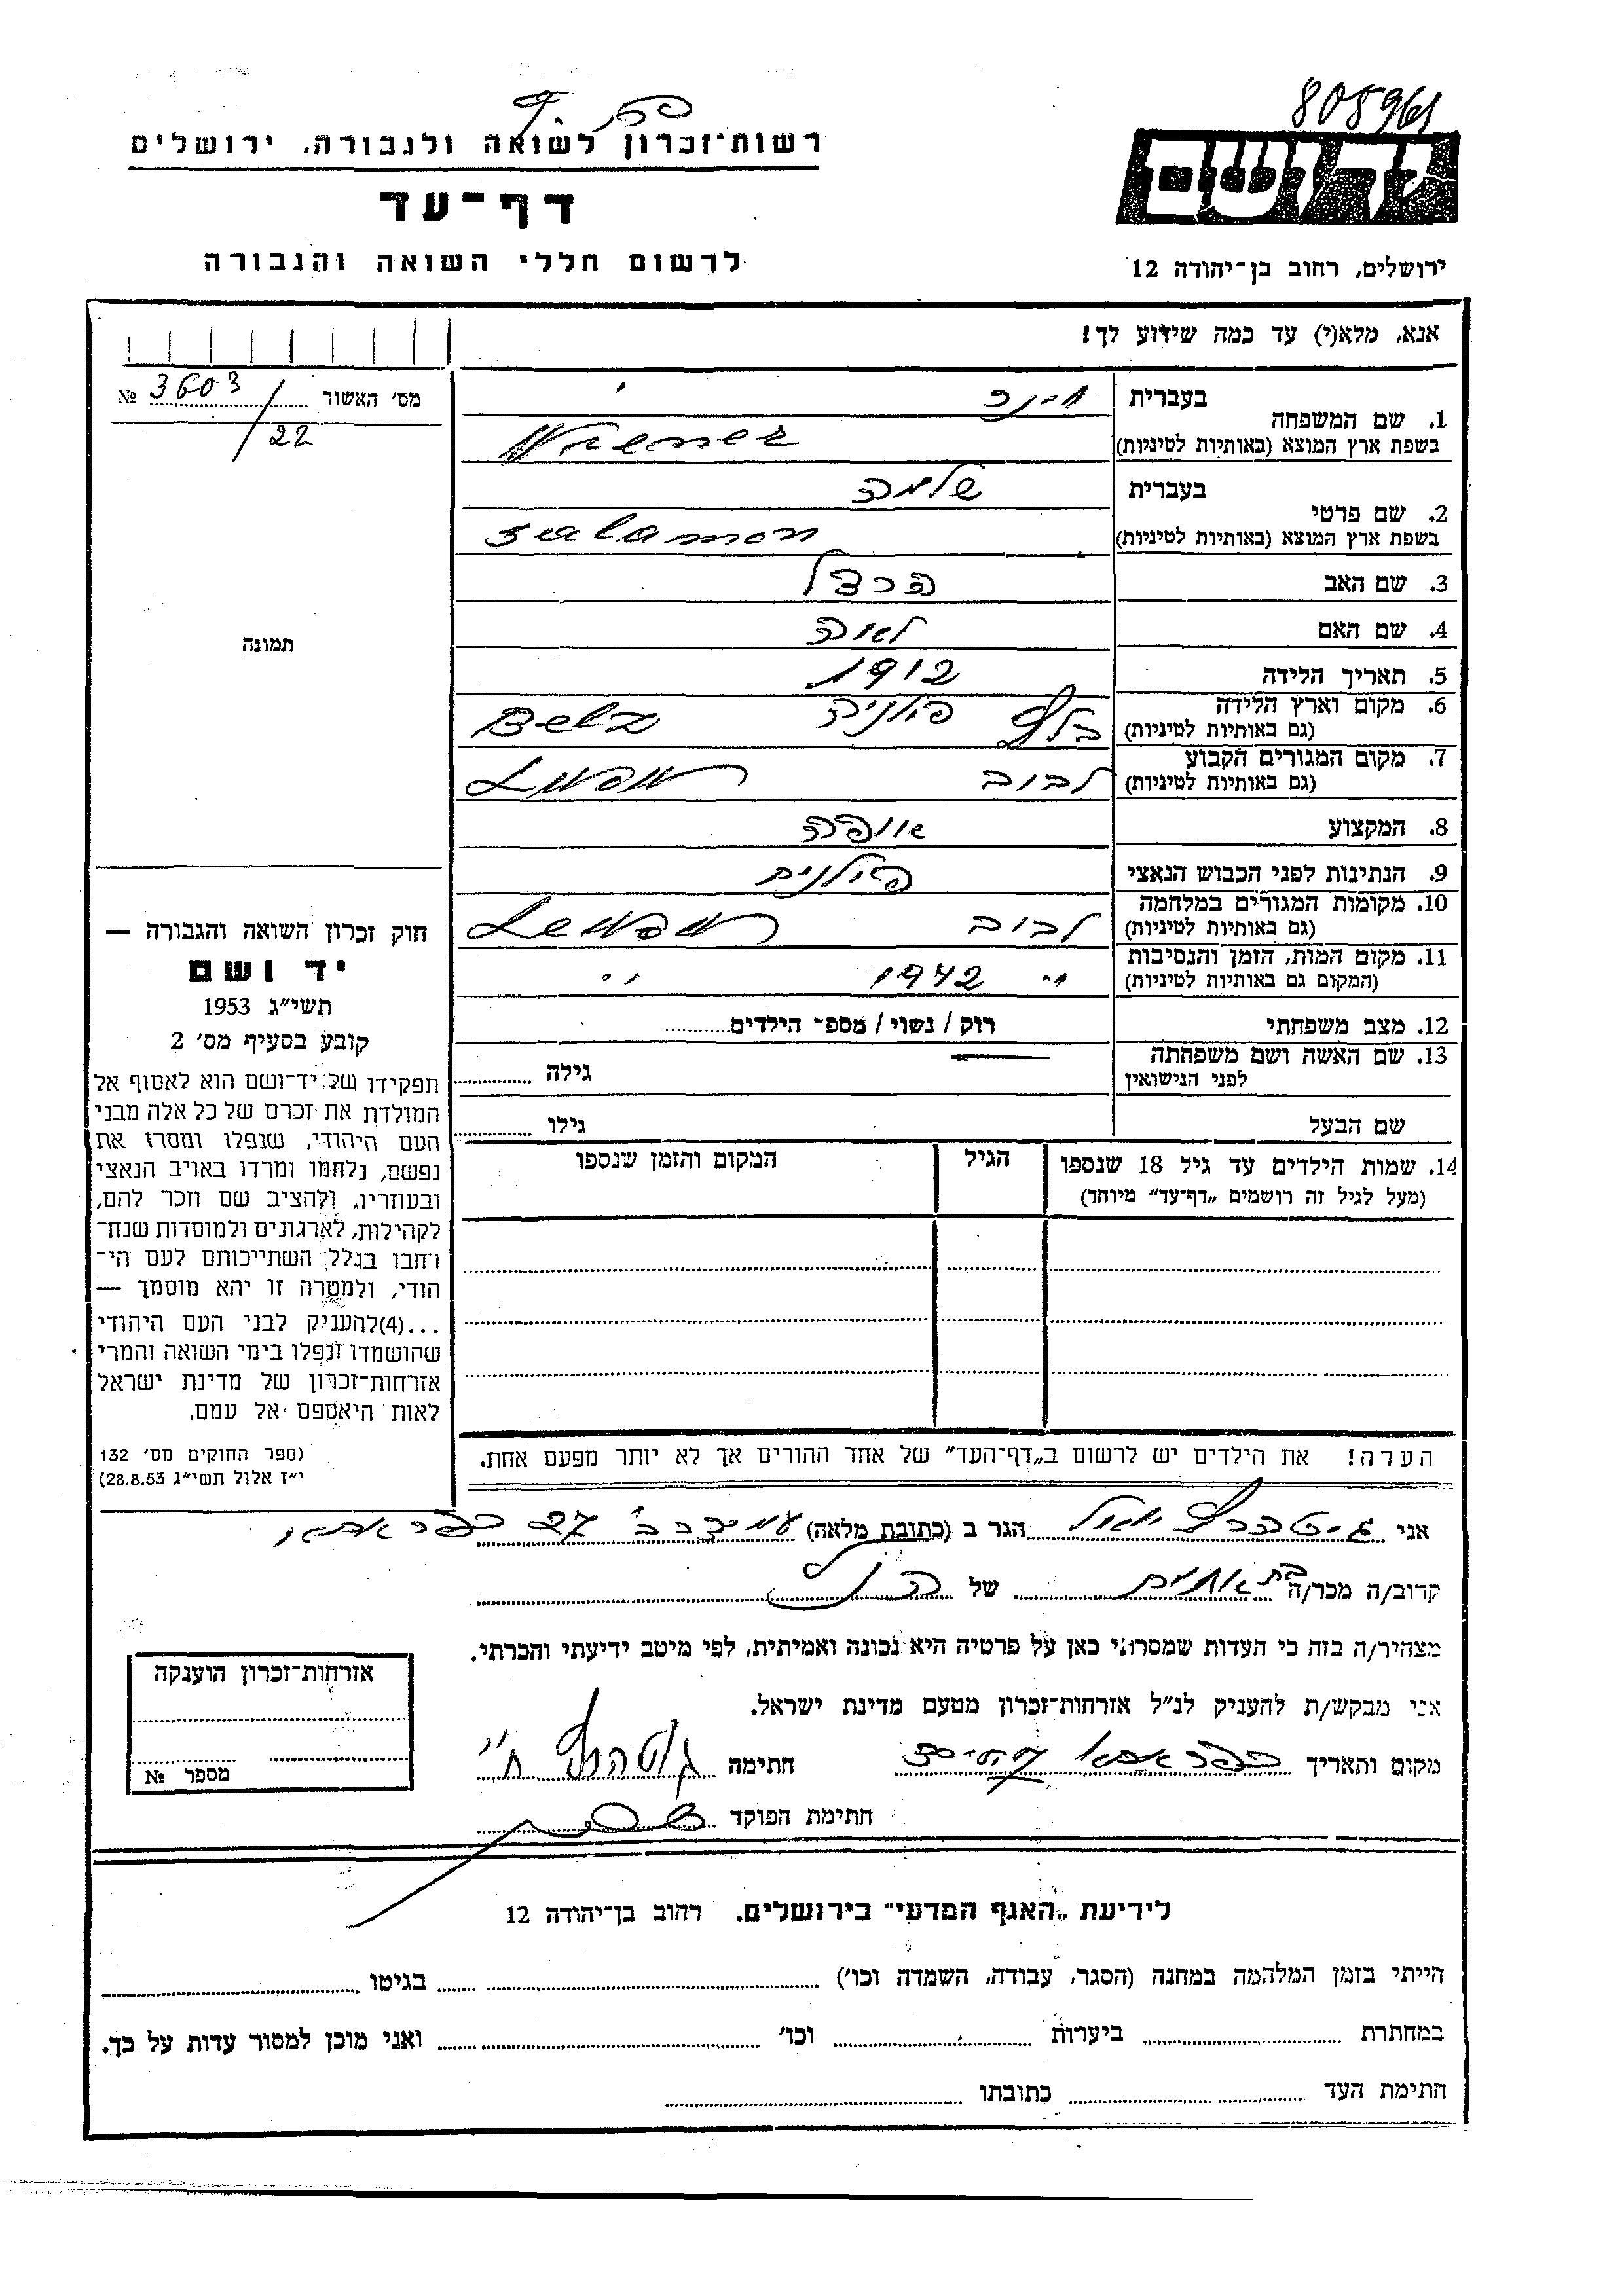 805961
רשות־זכרון לשואה ולגבורה, ירושלים
ידושם
דף־עד
לרשום חללי השואה והגבורה
ירושלים, רחוב בן־יהודה 12
אנא, מלא(י) עד כמה שידוע לך!
מס׳ האשור № 3603/22
1. שם המשפחה
בעברית
בשפת ארץ המוצא (באותיות לטיניות) Wiener
2. שם פרטי
בעברית שלמה
בשפת ארץ המוצא (באותיות לטיניות) salamon
3. שם האב
4. שם האם לאה
תמונה
5. תאריך הלידה 1912
6. מקום וארץ הלידה
(גם באותיות לטיניות) בלז פולניה Belz
7. מקום המגורים הקבוע
(גם באותיות לטיניות) לבוב Lwow
8. המקצוע אופה
9. הנתינות לפני הכבוש הנאצי פולנית
10. מקומות המגורים במלחמה
(גם באותיות לטיניות) לבוב Lewow
11. מקום המות, הזמן והנסיבות
(המקום גם באותיות לטיניות) " 1942 "
12. מצב משפחתי רוק / נשוי / מספ־ הילדים
13. שם האשה ושם משפחתה
לפני הנישואין גילה
שם הבעל גילו
14. שמות הילדים עד גיל 18 שנספו הגיל המקום והזמן שנספו
(מעל לגיל זה רושמים „דף־עד" מיוחד)
הערה! את הילדים יש לרשום ב„דף־העד" של אחד ההורים אך לא יותר מפעם אחת.
חוק זכרון השואה והגבורה —
יד ושם
תשי״ג 1953
קובע בסעיף מס׳ 2
תפקידו של יד־ושם הוא לאסוף אל
המולדת את זכרם של כל אלה מבני
העם היהודי, שנפלו ומסרו את
נפשם, נלחמו ומרדו באויב הנאצי
ובעוזריו, ולהציב שם וזכר להם,
לקהילות, לארגונים ולמוסדות שנח־
רחבו בגלל השתייכותם לעם הי־
הודי, ולמטרה זו יהא מוסמך —
...(4)להעניק לבני העם היהודי
שהושמדו ונפלו בימי השואה והמרי
אזרחות־זכרון של מדינת ישראל
לאות היאספם אל עמם.
(ספר החוקים מס׳ 132
י״ז אלול תשי״ג 28.8.53)
אני הגר ב (כתובת מלאה) 27 כפר אתא
קרוב/ה מכר/ה בת אחים של הנ״ל
מצהיר/ה בזה כי העדות שמסרתי כאן על פרטיה היא נכונה ואמיתית, לפי מיטב ידיעתי והכרתי.
אני מבקש/ת להעניק לנ״ל אזרחות־זכרון מטעם מדינת ישראל.
מקום ותאריך כפר אתא חתימה
חתימת הפוקד
אזרחות־זכרון הוענקה
מספר №
לידיעת „האגף המדעי״ בירושלים. רחוב בן־יהודה 12
הייתי בזמן המלהמה במחנה (הסגר, עבודה, השמדה וכו׳) בגיטו
במחתרת ביערות וכו׳ ואני מוכן למסור עדות על כך.
חתימת העד כתובתו